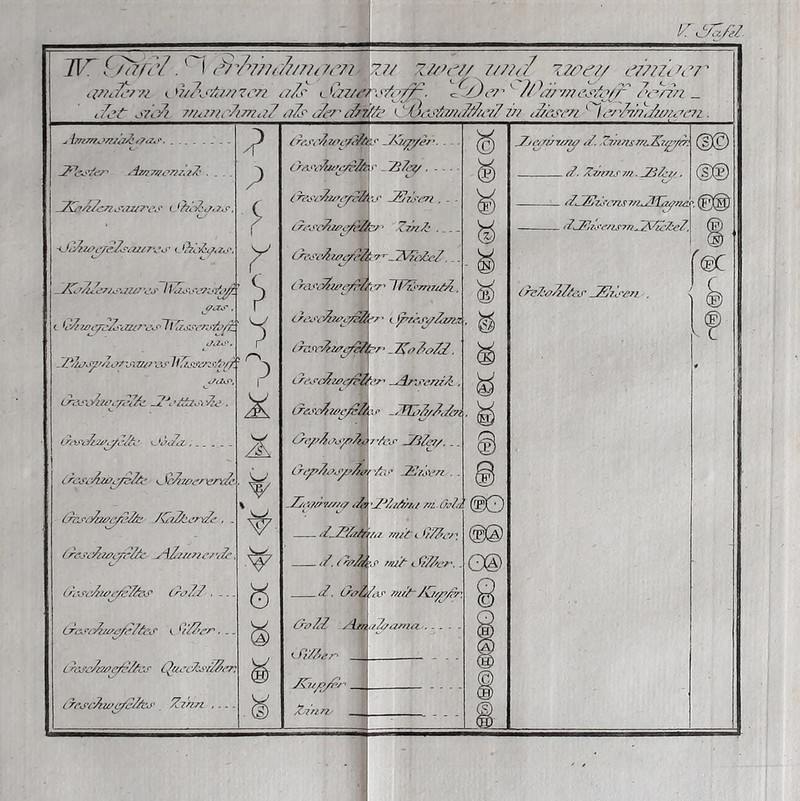 V. Tafel
IV. Tafel. Verbindungen zu zwey und zwey einiger
andern Substanzen als Sauerstoff. Der Wärmestoff befin_
det sich manchmal als der dritte Bestandtheil in diesen Verbindungen.
Ammoniakgas.
Fester Ammoniak.
Kohlensaures Stickgas.
Schwefelsaures Stickgas.
Kohlensaures Wasserstoff
gas.
Schwefelsaures Wasserstoff
gas.
Phosphorsaures Wasserstoff
gas.
Geschwefelte Pottasche.
Geschwefelte Soda.
Geschwefelte Schwererde
Geschwefelte Kalkerde.
Geschwefelte Alaunerde.
Geschwefeltes Gold.
Geschwefeltes Silber.
Geschwefeltes Quecksilber.
Geschwefeltes Zinn.
P
S
B
C
A
A
H
S
Geschwefeltes Kupfer.
Geschwefeltes Bley.
Geschwefeltes Eisen.
Geschwefelter Zink.
Geschwefelter Nickel.
Geschwefelter Wismuth.
Geschwefelter Spiesglanz.
Geschwefelter Kobold.
Geschwefelter Arsenik.
Geschwefeltes Molybden.
Gephosphortes Bley.
Gephosphortes Eisen.
Legirung der Platina m. Gold
d. Platina mit Silber.
d. Goldes mit Silber.
d. Goldes mit Kupfer.
Gold Amalgama.
Silber
Kupfer
Zinn
C
P
F
Z
N
B
K
P
F
P
P A
A
C
H
A
H
C
H
S
H
Legirung d. Zinns m. Kupfer
d. Zinns m. Bley.
d. Eisens m. Magnes.
d. Eisens m. Nickel.
Gekohltes Eisen.
S C
S P
F M
F
N
F C
C
F
F
C